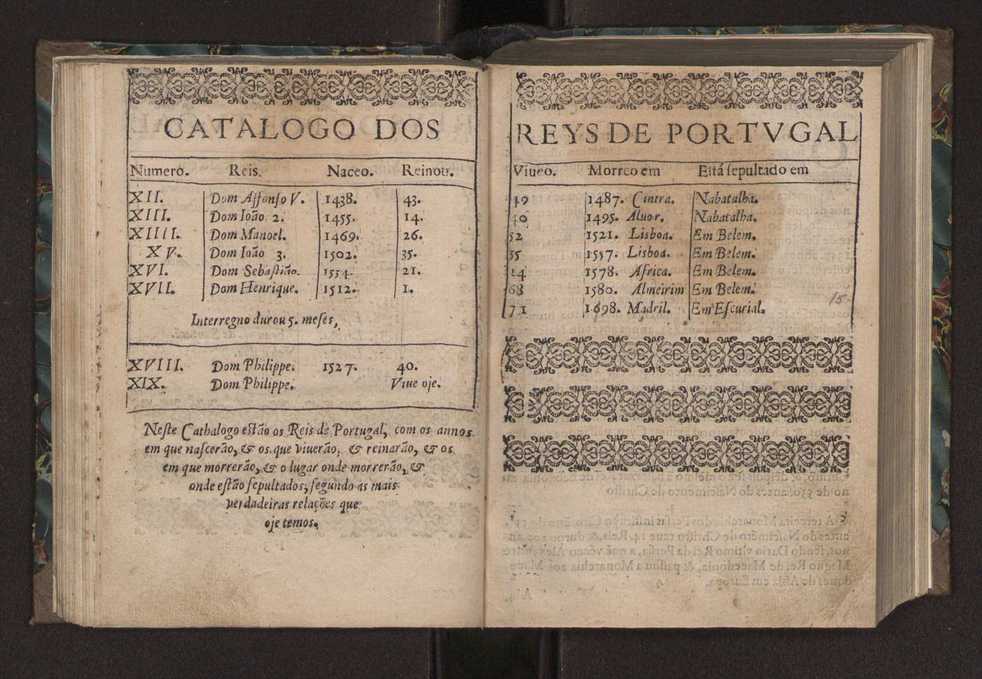 CATALOGO DOS
Numero. Reis. Naceo. Reinou.
XII. Dom Affonso V. 1438. 43.
XIII. Dom Ioão 2. 1455. 14.
XIIII. Dom Manoel. 1469. 26.
XV. Dom Ioão 3. 1502. 35.
XVI. Dom Sebastião. 1554. 21.
XVII. Dom Henrique. 1512. 1.
Interregno durou 5. meses,
XVIII. Dom Philippe. 1527. 40.
XIX. Dom Philippe. Viue oje.
Neste Cathalogo estão os Reis de Portugal, com os annos
em que nascerão, & os que viuerão, & reinarão, & os
em que morrerão, & o lugar onde morrerão, &
onde estão sepultados, segundo as mais
verdadeiras relações que
oje temos.
REYS DE PORTVGAL
Viueo. Morreo em Está sepultado em
49 1487. Cintra. Nabatalha.
40 1495. Aluor. Nabatalha.
52 1521. Lisboa. Em Belem.
55 1557. Lisboa. Em Belem.
24 1578. Africa. Em Belem.
68 1580. Almeirim Em Belem.
71 1698. Madril. Em Escurial.
15